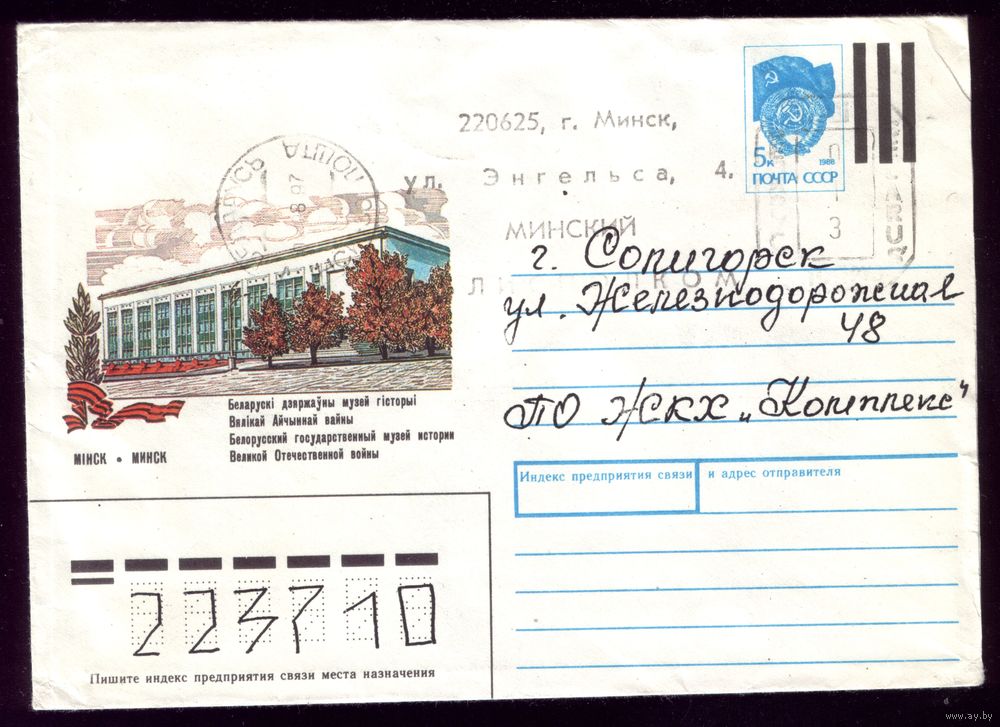 5к
1988
ПОЧТА СССР
220625, г. Минск,
ул. Энгельса, 4.
МИНСКИЙ
г. Солигорск
ул. Железнодорожная
48
ПО ЖКХ „Комплекс“
ПОШТА
8 97
3
Беларускі дзяржаўны музей гісторыі
Вялікай Айчыннай вайны
Белорусский государственный музей истории
Великой Отечественной войны
МІНСК • МИНСК
Индекс предприятия связи и адрес отправителя
223710
Пишите индекс предприятия связи места назначения
www.ay.by